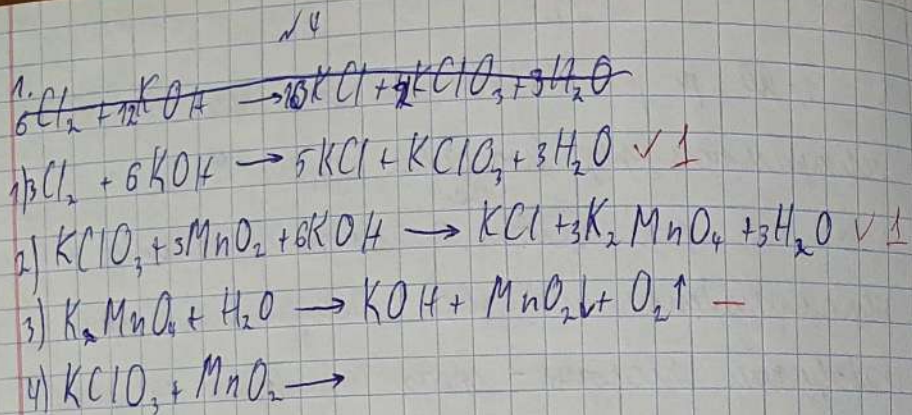 №4
1. 6Cl₂ + 12KOH → 10KCl + 2KClO₃ + 3H₂O
1) 3Cl₂ + 6KOH → 5KCl + KClO₃ + 3H₂O √ 1
2) KClO₃ + 3MnO₂ + 6KOH → KCl + 3K₂MnO₄ + 3H₂O √ 1
3) K₂MnO₄ + H₂O → KOH + MnO₂↓ + O₂↑ —
4) KClO₃ + MnO₂ →